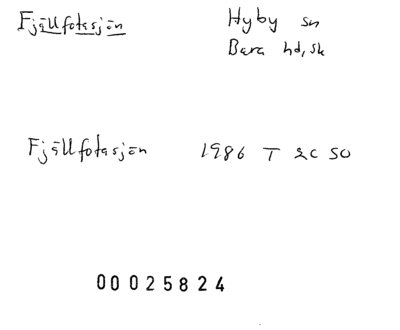 Fjällfotasjön
Hyby sn
Bara hd, sk
Fjällfotasjön 1986 T 2C SO
00025824